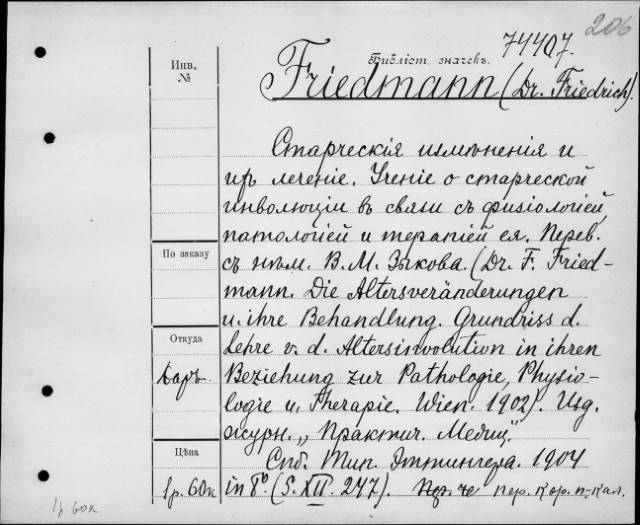 206
74407.
Библіот. значекъ.
Инв.
№
Friedmann (Dr. Friedrich).
Старческія измѣненія и
ихъ леченіе. Ученіе о старческой
инволюціи въ связи съ физіологіей,
патологіей и терапіей ея. Перев.
По заказу
съ нѣм. В. М. Зыкова. (Dr. F. Fried-
mann. Die Altersveränderungen
u. ihre Behandlung. Grundriss d.
Откуда
Lehre v. d. Altersinvolution in ihren
Даръ
Beziehung zur Pathologie, Physio-
logie u. Therapie. Wien. 1902). Изд.
журн. „Практич. Медиц."
Цѣна
Спб. Тип. Эттингера. 1904
1р. 60к
in 8º. (S. XII. 247). пер. кор. п-кал.
1р. 60к